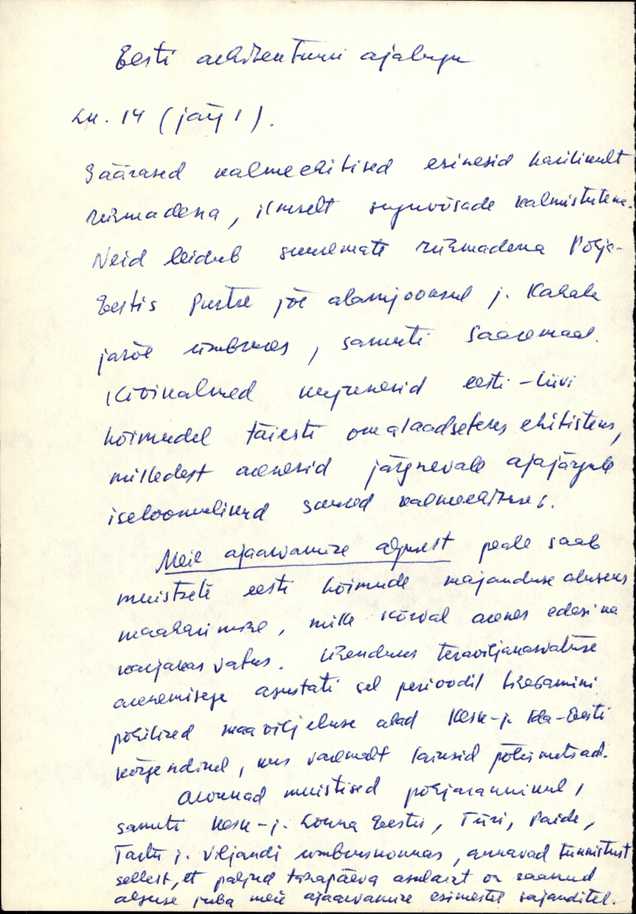 Eesti arhitektuuri ajalugu
Lk. 14 (järg 1).
Säärased kalmeehitised esinesid harilikult
rühmadena, ilmselt suguvõsade kalmistutena.
Neid leidub suuremate rühmadena Põhja-
Eestis Purtse jõe alamjooksul j. Kahala
järve ümbruses, samuti Saaremaal.
Kivikalmed kujunesid eesti-liivi
hõimudel täiesti omalaadseteks ehitisteks,
milledest arenesid järgnevale ajajärgule
iseloomulikud suured kalmeehitused.
Meie ajaarvamise algusest peale saab
muistsete eesti hõimude majanduse aluseks
maaharimine, mille kõrval arenes edasi ka
karjakasvatus. Ühenduses teraviljakasvatuse
arenemisega asustati sel perioodil tihedamini
põhilised maaviljeluse alad Kesk- j. Ida-Eesti
kõrgendikel, kus varemalt laiusid põlismetsad.
Arvukad muistised põhjarannikul,
samuti Kesk- j. Lõuna Eestis, Türi, Paide,
Tartu j. Viljandi ümbruskonnas, annavad tunnistust
sellest, et paljud tänapäeva asulaist on saanud
alguse juba meie ajaarvamise esimestel sajanditel.